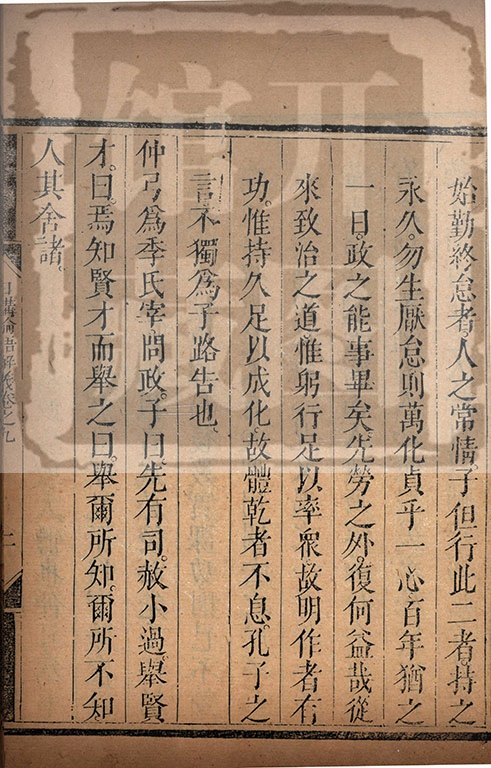 始勤終怠者。人之常情。子但行此二者。持之
永久。勿生厭怠。則萬化貞乎一心。百年猶之
一日。政之能事畢矣。先勞之外。復何益哉。從
來致治之道。惟躬行足以率衆。故明作者有
功。惟持久足以成化。故體乾者不息。孔子之
言。不獨爲子路告也。
仲弓爲季氏宰。問政。子曰。先有司。赦小過。舉賢
才。曰。焉知賢才而舉之。曰。舉爾所知。爾所不知。
人其舍諸。
日講論語解義卷之九
二